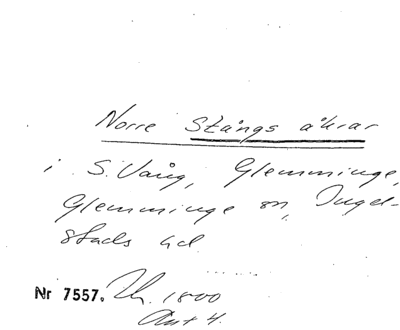 Norre Stångs åkrar
i S. Vång, Glemminge,
Glemminge sn, Ingel-
stads hd
Nr 7557. 1800
Akt 4.